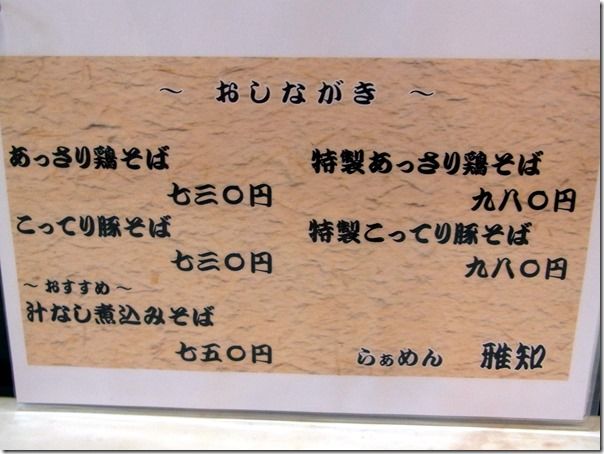 〜 おしながき 〜
あっさり鶏そば
七三〇円
こってり豚そば
七三〇円
〜おすすめ〜
汁なし煮込みそば
七五〇円
特製あっさり鶏そば
九八〇円
特製こってり豚そば
九八〇円
らぁめん 雅知